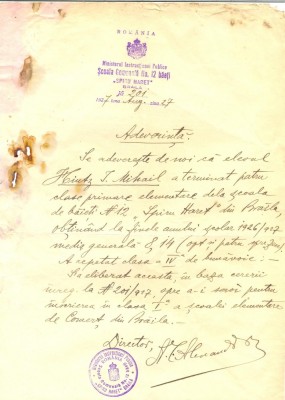 ROMÂNIA
Ministerul Instrucțiunei Publice
Școala Comercială No. 12 băeți
"SPIRU HARET"
BRĂILA
No 201
1927 Aug. ziua 27
Adeverință.
Se adeverește de noi că elevul
Hintz T. Mihail a terminat patru
clase primare elementare dela școala
de băeți No 12, "Spiru Haret" din Brăila,
obținând la finele anului școlar 1926/927
media generală 8,14 (opt și patru spre zece)
A repetat clasa a IV de bunăvoie:
S'a eliberat aceasta, în baza cererii
înreg. la No 201/927, spre a-i servi pentru
înscrierea în clasa I a școalei elementare
de Comerț din Brăila.
Director,